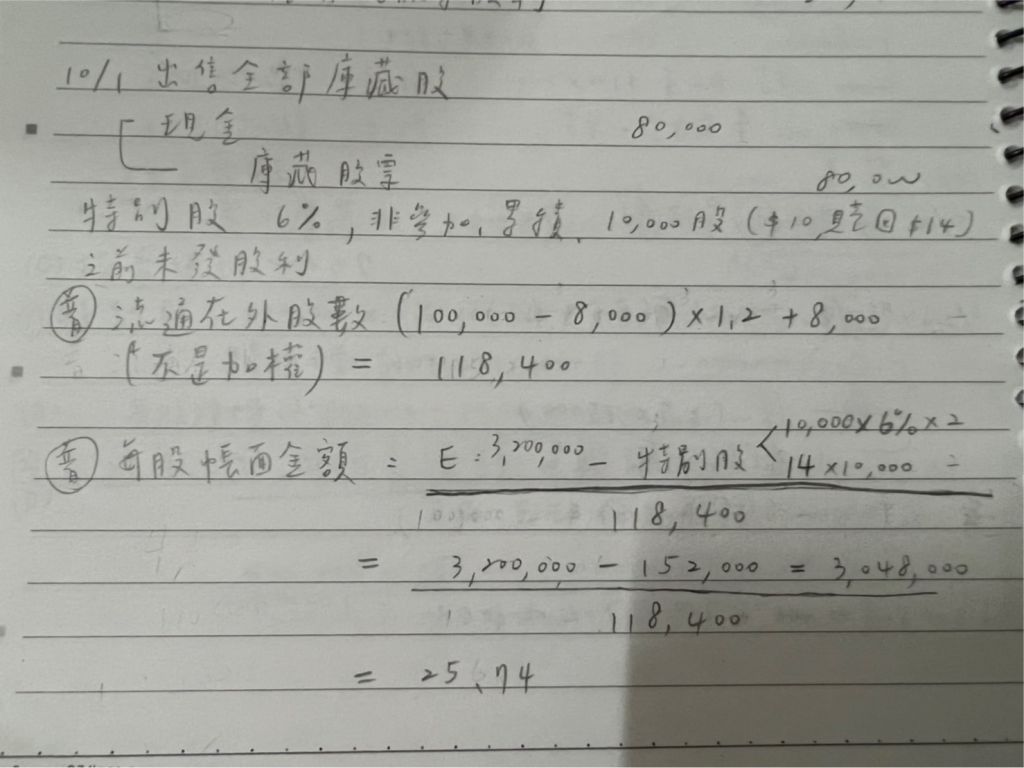 10/1 出售全部庫藏股
現金 80,000
庫藏股票 80,000
特別股 6%, 非參加, 累積. 10,000股 ($10 贖回 $14)
之前未發股利
普 流通在外股數 (100,000 - 8,000) × 1.2 + 8,000
(不是加權) = 118,400
10,000×6%×2
普 每股帳面金額 = E: 3,200,000 - 特別股 < 14×10,000 =
118,400
= 3,200,000 - 152,000 = 3,048,000
118,400
= 25.74